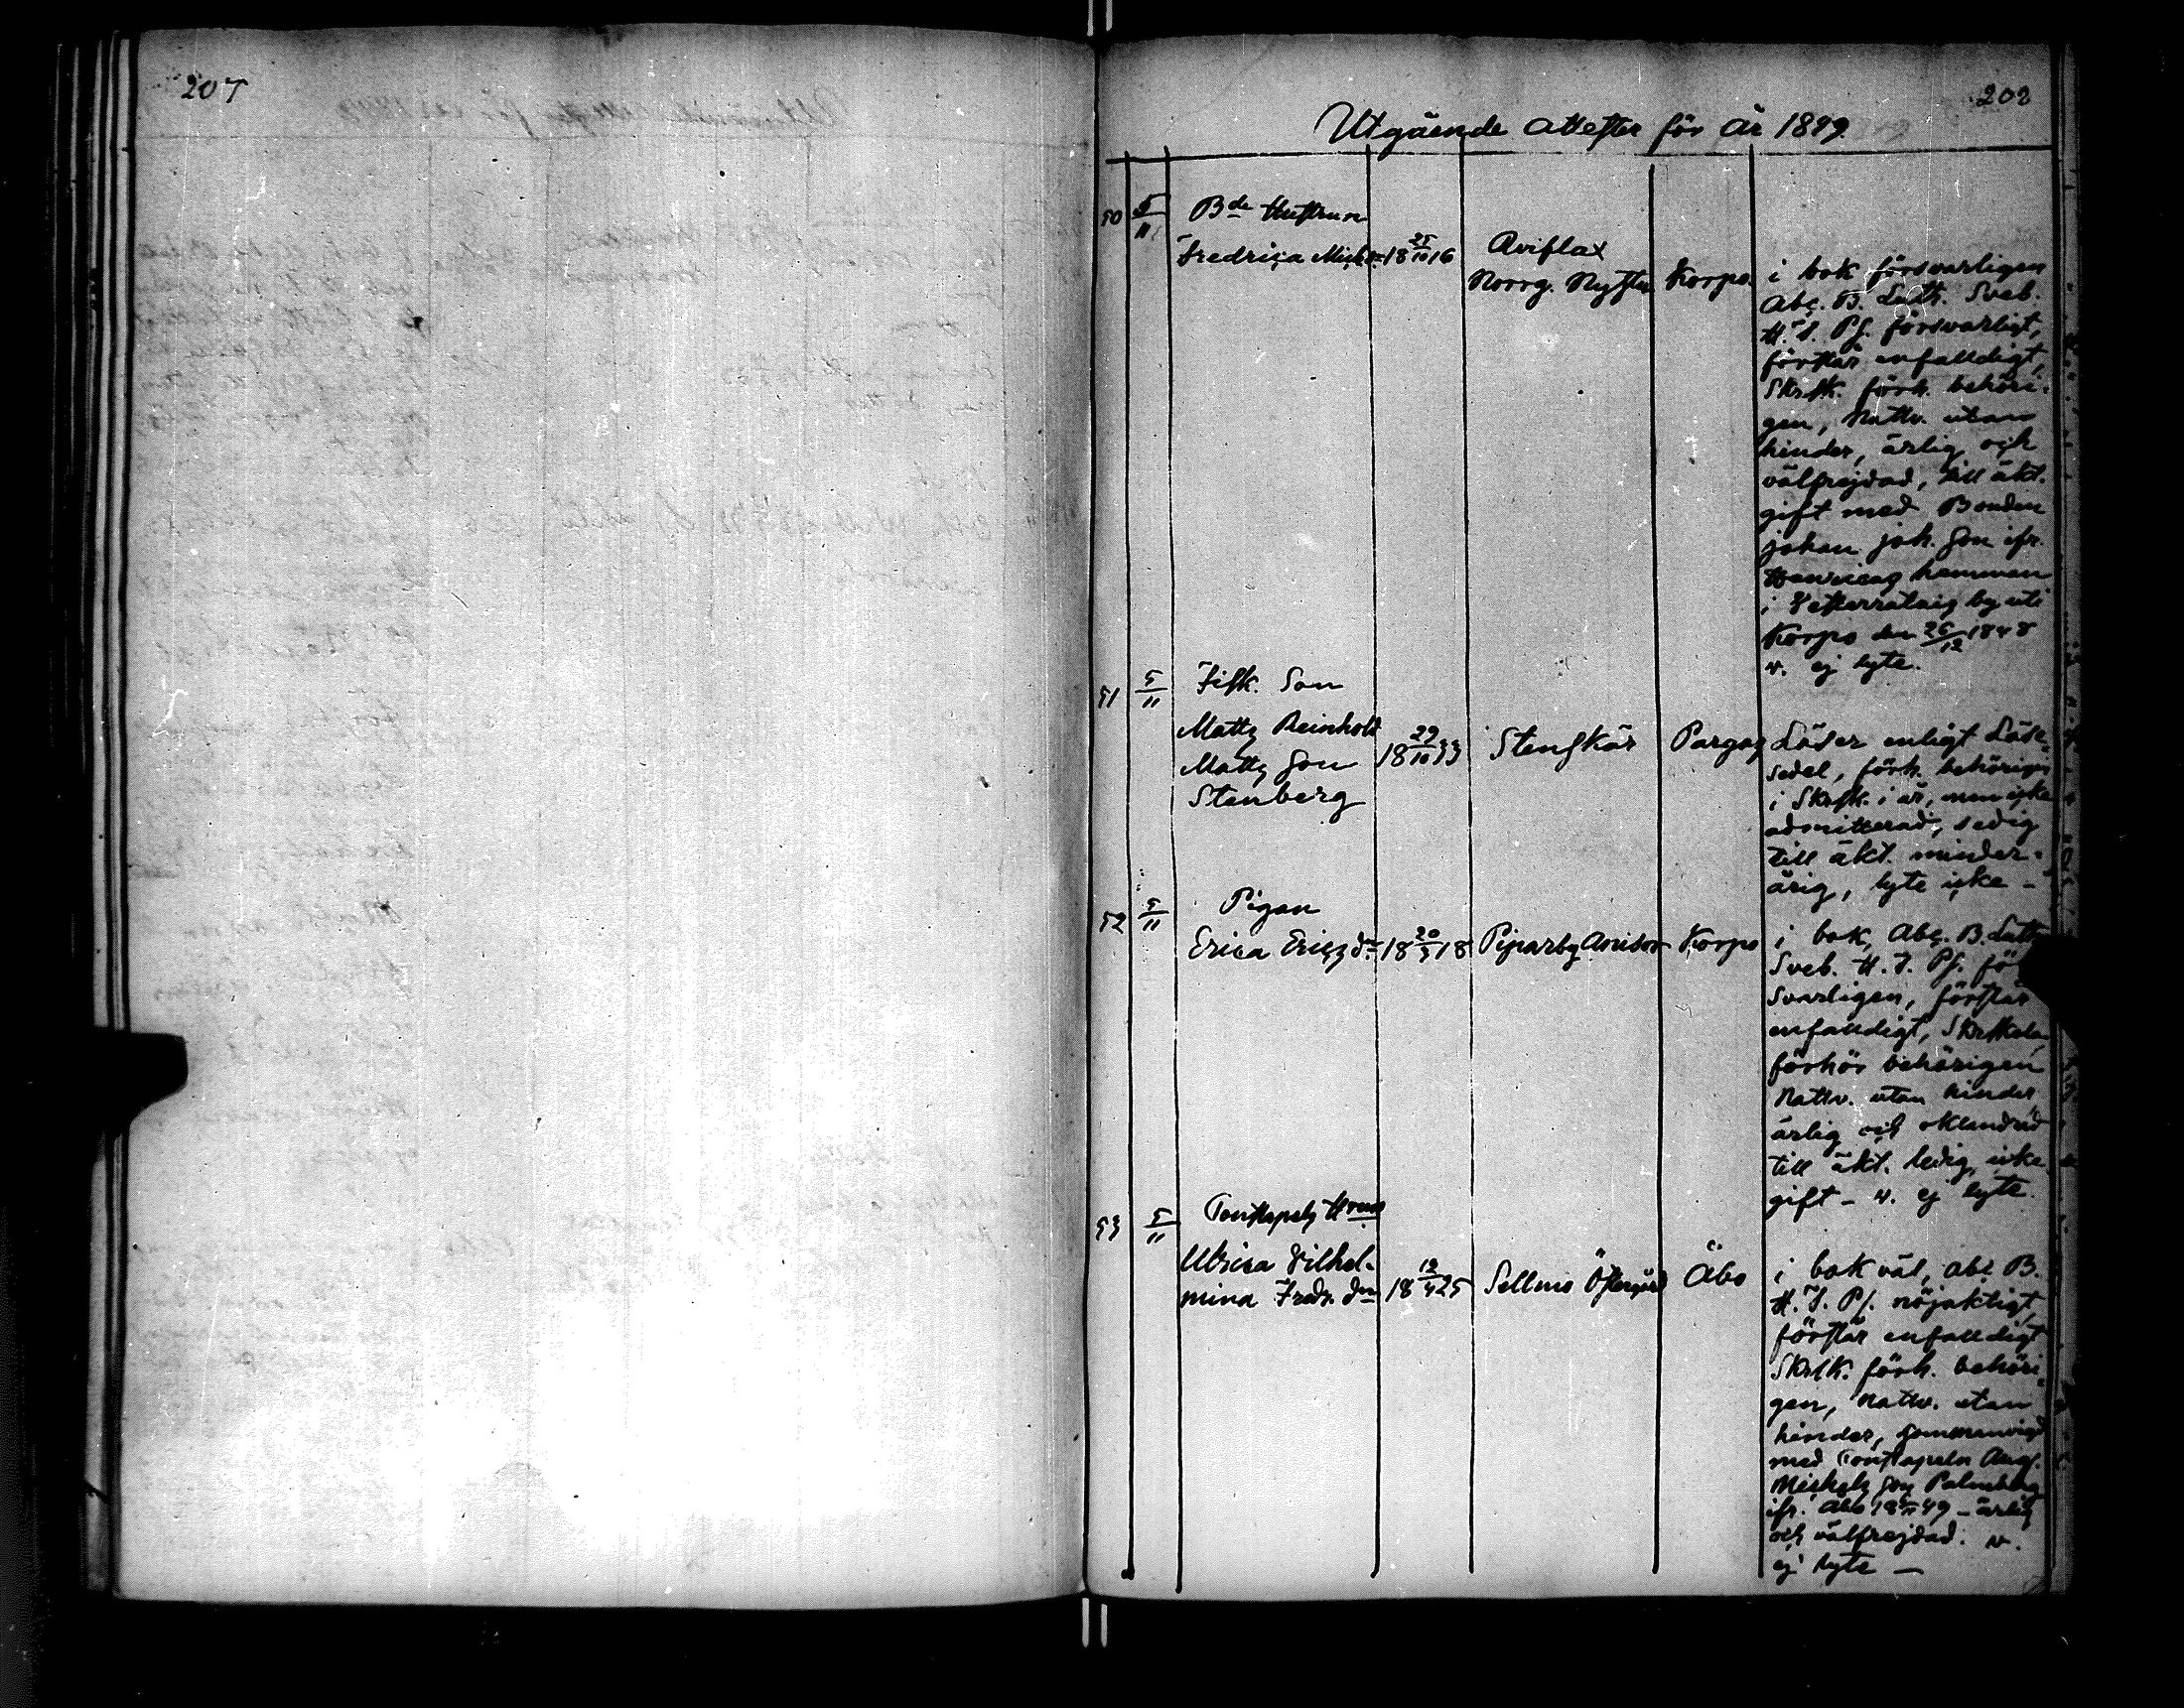 207
202
Utgående Attester för år 1849.
50 5/11 Bde Hustrun
Fredrica Mich.dr 18 25/10 16 Aviflax
Norrg. Nystu Korpo.
i bok försvarligen
Abc. B. Luth. Sveb.
H.T. Ps. försvarligt,
förstår enfalldigt,
Skrsk. förh. behöri-
gen, Nattv. utan
hinder, ärlig och
välfrejdad, till äkt.
gift med Bonden
Johan Joh. Son ifr.
hemman
i by uti
Korpo den 26/12 1848
v. ej lyte.
51 5/11 Fisk. Son
Matts Reinhold
Matts Son
Stenberg
18 29/10 33 Stenskär Pargas
Läser enligt Läse-
sedel, förh. behörigen
i Skrsk. i år, men icke
admitterad, sedig
till äkt. minder-
årig, lyte icke –
52 5/11 Pigan
Erica Ericsdr 18 20/3 18 Piparby Korpo
i bok, Abc. B. Luth
Sveb. H.T. Ps. för
svarligen, förstår
enfalldigt, Skrskola
förhör behörigen
Nattv. utan hinder
ärlig och oklandrad
till äkt. ledig, icke
gift – v. ej lyte.
53 5/11 Contapels Hrun
Ulrica Vilhel-
mina Fredr. dr 18 12/4 25 Sellmo Östergård Åbo
i bok väl, abc B.
H.T. Ps. nöjaktigt,
förstår enfalldigt
Skrsk. förh. behöri-
gen, nattv. utan
hinder, sammanvigd
med Contapeln Aug.
Michels Son Palmberg
ifr. Åbo 49 – ärlig
och välfrejdad. v.
ej lyte –